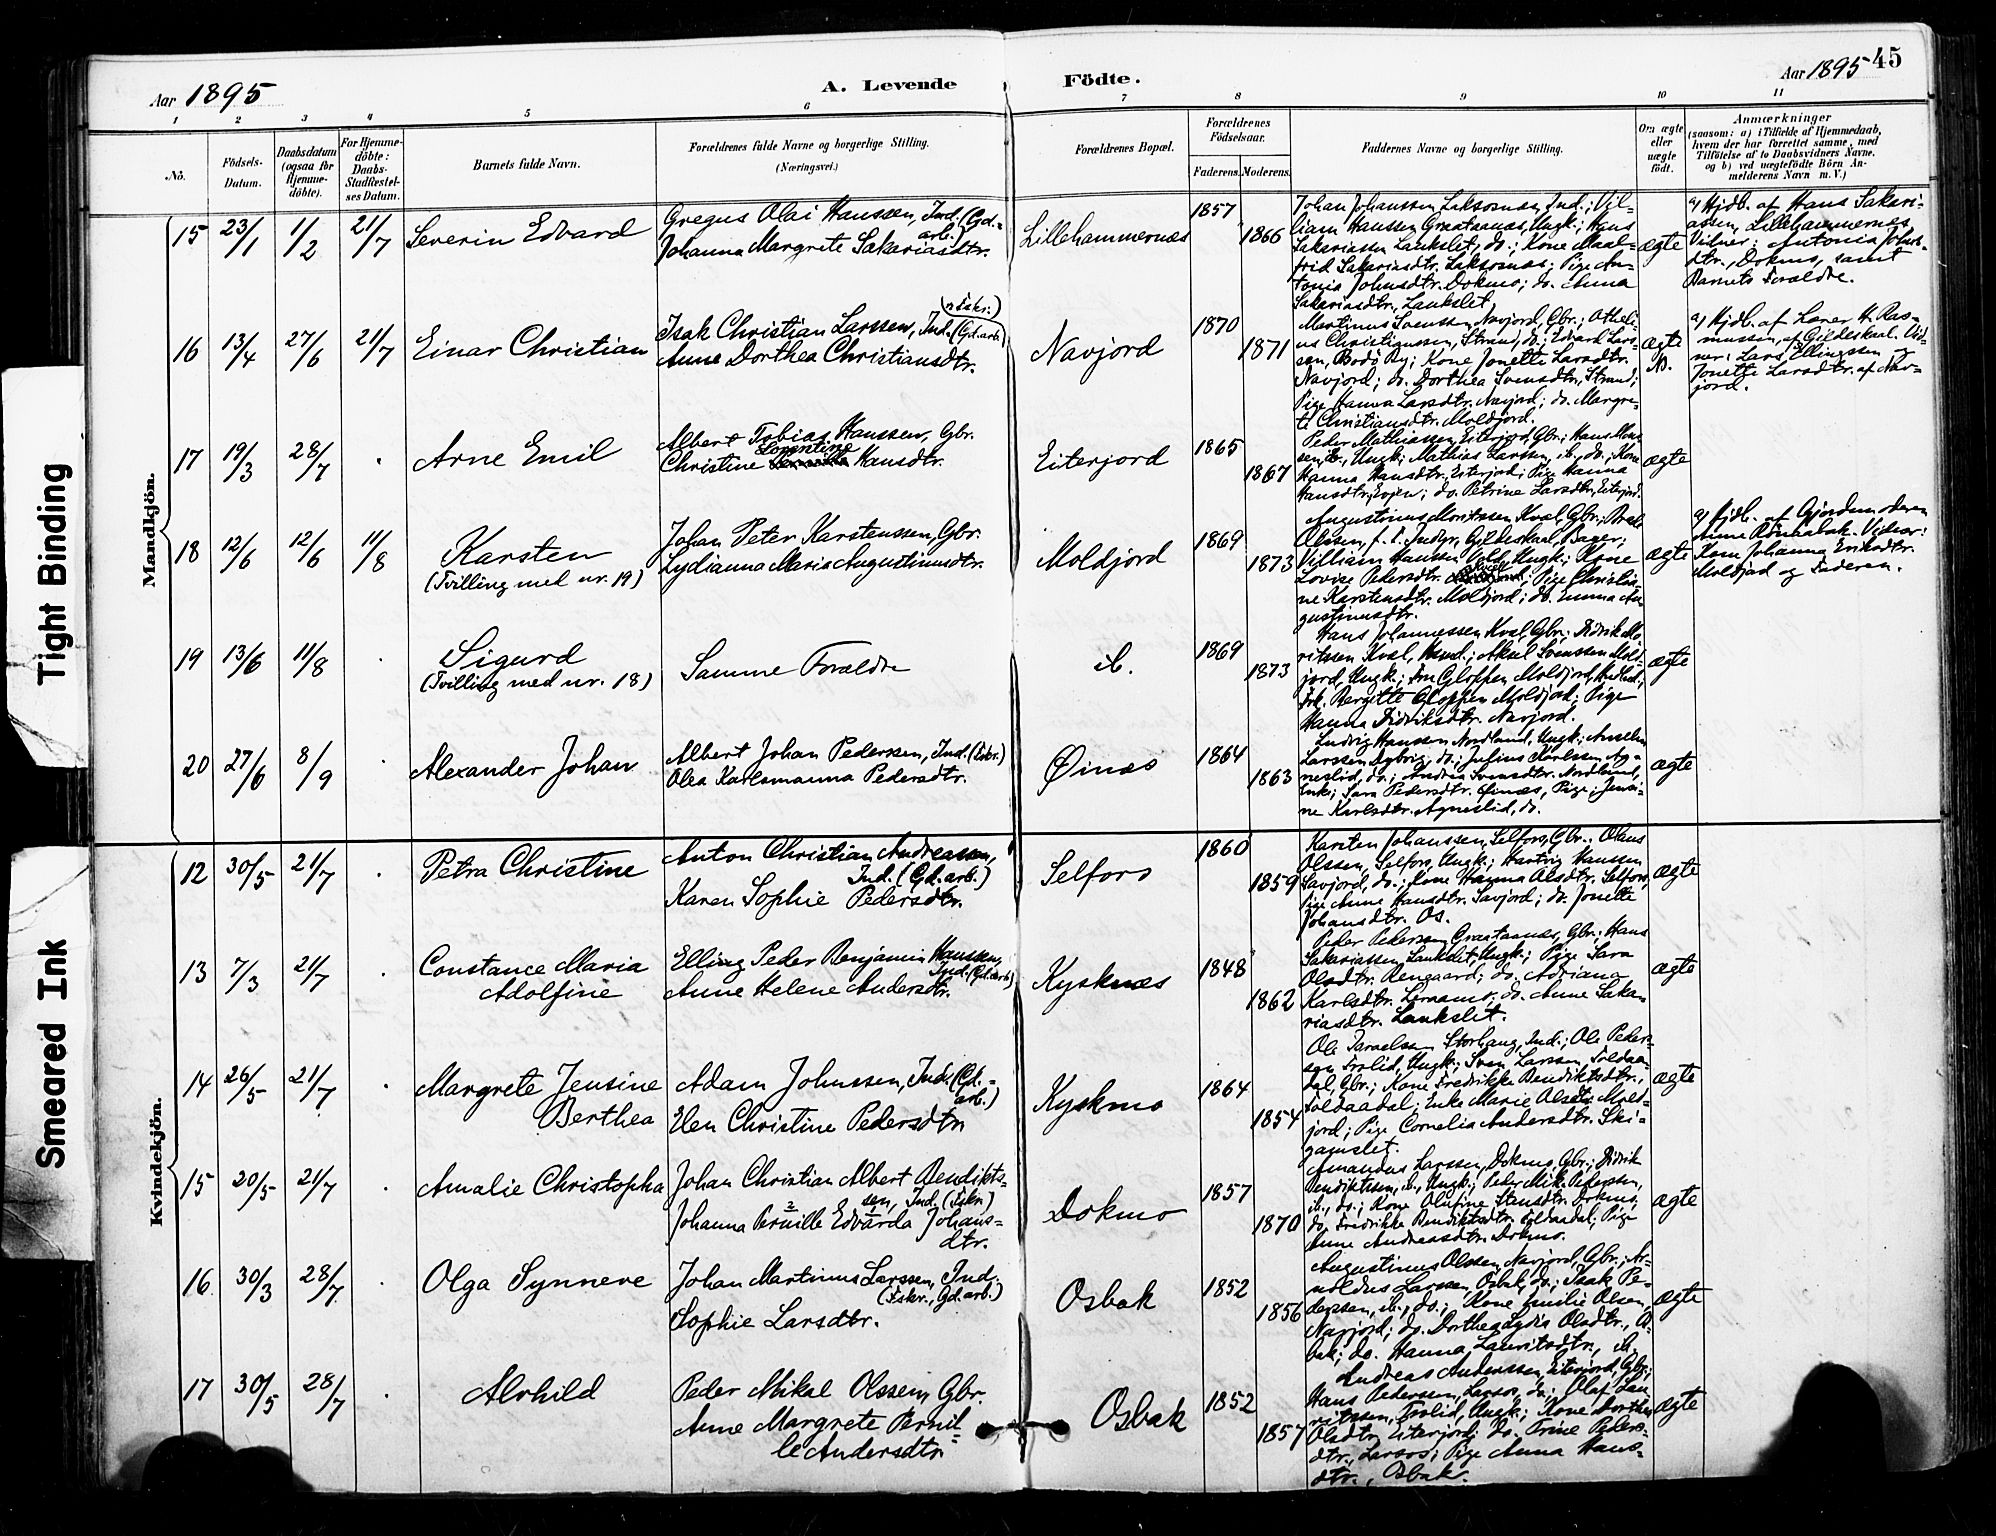 Aar 1895
A. Levende Födte.
Aar 1895 45
1 2 3 4 5 6 7 8 9 10 11
No.
Födsels-
Datum.
Daabsdatum
(ogsaa for
Hjemme-
döbte).
For Hjemme-
döbte:
Daabs-
Stadfæstel-
ses Datum.
Barnets fulde Navn.
Forældrenes fulde Navne og borgerlige Stilling.
(Næringsvei.)
Forældrenes Bopæl.
Forældrenes
Födselsaar.
Faderens. Moderens.
Faddernes Navne og borgerlige Stilling.
Om ægte
eller
uægte
födt.
Anmærkninger
(saasom: a) i Tilfælde af Hjemmedaab,
hvem der har forrettet samme, med
Tilföielse af to Daabsvidners Navne.
og b) ved uægtefödte Börn An-
melderens Navn m. V.)
Mandkjön.
15 23/1 1/2 21/7 Severin Edvard
Gregus Olai Hanssen, Ind. (Gd.-
arb.)
Johanna Margrete Sakariasdtr.
Lillehammernæs
1857
1866
Johan Johanssen Laksosnæs, Ind.; Vil-
liam Hanssen Graataanæs, Ungk.; Hans
Sakariassen Laukslet, do.; Kone Maal-
frid Sakariasdtr. Laksosnæs; Pige An-
tonia Johnsdtr. Dokmo; do. Anna
Sakariasdtr. Laukslet.
ægte
a) Hjdb. af Hans Sakari-
assen, Lillehammernæs
Vidner: Antonia Johns-
dtr., Dokmo, samt
Barnets Forældre.
16 13/4 27/6 21/7 Einar Christian
Isak Christian Larssen, Ind. (Gd.arb.)
(o Fskr.)
Anne Dorthea Christiansdtr.
Navjord
1870
1871
Martinus Svenssen Navjord, Gbr.; Atheli-
us Christianssen, Strand, do.; Edvard Lars-
sen, Bodö By; Kone Jonette Larsdtr.
Navjord; do. Dorthea Svensdtr., Strand;
Pige Hanna Larsdtr. Navjord; do. Margre-
te Christiansdtr. Moldjord.
ægte
a) Hjdb. af Lærer H. Ras-
mussen, af Gildeskaal. Vid-
ner: Lars Ellingssen og
Jonette Larsdtr. af Nav-
jord.
17 19/3 28/7 Arne Emil
Albert Tobias Hanssen, Gbr.
Lorentine
Christine Hansdtr.
Eiterjord
1865
1867
Peder Mathiassen, Eiterjord, Gbr.; Hans Mons-
sen, ib., Ungk.; Mathias Larssen, ib., do.; Kone
Hanna Hansdtr., Eiterjord; Pige Hanna
Hansdtr., Evjen; do. Petrine Larsdtr., Eiterjord.
ægte
18 12/6 12/6 11/8 Karsten
(Tvilling med nr. 19)
Johan Peter Karstenssen, Gbr.
Lydianna Maria Augustinusdtr.
Moldjord
1869
1873
Augustinus Moritssen Kval, Gbr.;
Olssen, f. t. Indyr, Gildeskaal, Bager;
Villiam Hanssen Ungk.; Kone
Lovise Pedersdtr. ; Pige Christia-
ne Karstensdtr. Moldjord; do. Emma Au-
gustinusdtr.
ægte
a) Hjdb. af Gjordemoderen
Anne Rönaabak. Vidner:
Kone Johanna Eriksdtr.
Moldjord og Faderen.
19 13/6 11/8 Sigurd
(Tvilling med nr. 18)
Samme Forældre
ib.
1869
1873
Hans Johannessen Kval, Gbr.; Didrik Mo-
ritssen Kval, Ind.; Aksel Svenssen Mold-
jord, Ungk.; Fru Gloppen Moldjord,
Frk. Bergitte Gloppen Moldjord; Pige
Hanna Didriksdtr. Navjord.
ægte
20 27/6 8/9 Alexander Johan
Albert Johan Pederssen, Ind. (Fskr.)
Olea Karlsmanna Pedersdtr.
Öinæs
1864
1863
Ludvig Hanssen Nordland, Ungk.; Anselm
Larssen Nybrig, do.; Julius Karlssen Ag-
neslid, do.; Andrea Svensdtr. Nordland,
Enke; Sara Pedersdtr. Öinæs, Pige; Jensi-
ne Karlsdtr. Agneslid, do.
ægte
Kvindekjön.
12 30/5 21/7 Petra Christine
Anton Christian Andreassen,
Ind. (Gd.arb.)
Karen Sophie Pedersdtr.
Selfors
1860
1859
Karsten Johanssen, Selfors, Gbr.; Olaus
Olssen, Selfors, Ungk.; Hartvig Hanssen
Savjord, do.; Kone Hanna Olsdtr. Selfors,
Pige Anne Hansdtr. Savjord; do. Jonette
Johansdtr. Os.
ægte
13 7/3 21/7 Constance Maria
Adolfine
Elling Peder Benjamin Hanssen,
Ind. (Gd.arb.)
Anne Helene Andersdtr.
Kysknæs
1848
1862
Peder Pederssen Graataanæs, Gbr.; Hans
Sakariassen Laukslet, Ungk.; Pige Sara
Olsdtr. Rengaard; do. Adriana
Karlsdtr. ; do. Anne Saka-
riasdtr. Laukslet.
ægte
14 26/5 21/7 Margrete Jensine
Berthea
Adam Johnssen, Ind. (Gd.-
arb.)
Elen Christine Pedersdtr.
Kyskmo
1864
1854
Ole Israelssen Storhaug, Ind.; Ole Peders-
sen Trolid, Ungk.; Sven Larssen, Toldaa-
dal, Gbr.; Kone Fredrikke Bendiktsdtr.,
Toldaadal; Enke Marie Olsdtr. Mold-
jord; Pige Cornelia Andersdtr. Ski-
gamslet.
ægte
15 20/5 21/7 Amalie Christopha
Johan Christian Albert Bendikts-
sen, Ind. (Fskr.)
Johanna Pernille Edvarda Johans-
dtr.
Dokmo
1857
1870
Amandus Larssen, Dokmo, Gbr.; Didrik
Bendiktssen, ib., Ungk.; Peder Mik. Pederssen,
ib., do.; Kone Olufine Stensdtr. Dokmo;
do. Fredrikke Bendiktsdtr. Toldaadal; Pige
Anne Andreasdtr. Dokmo.
ægte
16 30/3 28/7 Olga Synneve
Johan Martinus Larssen, Ind.
(Fskr., Gd.arb.)
Sophie Larsdtr.
Osbak
1852
1856
Augustinus Olssen, Navjord, Gbr.; Ar-
noldus Larssen, Osbak, do.; Isak Pe-
derssen, ib., do.; Kone Emilie Olsen,
Navjord; do. Dorthea Lydia Olsdtr., Os-
bak; do. Hanna Lauritsdtr., ib.
ægte
17 30/5 28/7 Alvhild
Peder Mikal Olssen, Gbr.
Anne Margrete Pernil-
le Andersdtr.
Osbak
1852
1857
Andreas Anderssen, Eiterjord, Gbr.;
Hans Pederssen, Larsos, do.; Olaf Lau-
ritssen, Trolid, Ungk.; Kone Dorthea
Olsdtr., Eiterjord; do. Trine Peders-
dtr., Larsos; Pige Anna Hans-
dtr., Osbak.
ægte
Tight Binding
Smeared Ink